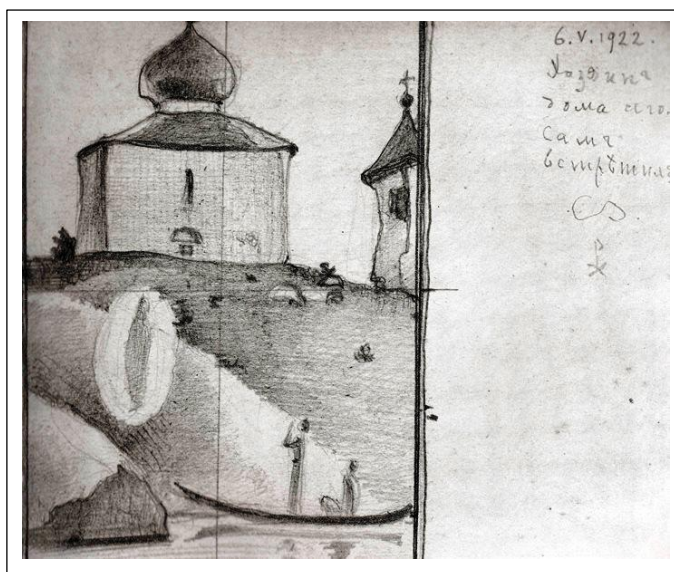 6.V.1922.
Хозяинъ
дома его.
Самъ
встрѣтилъ